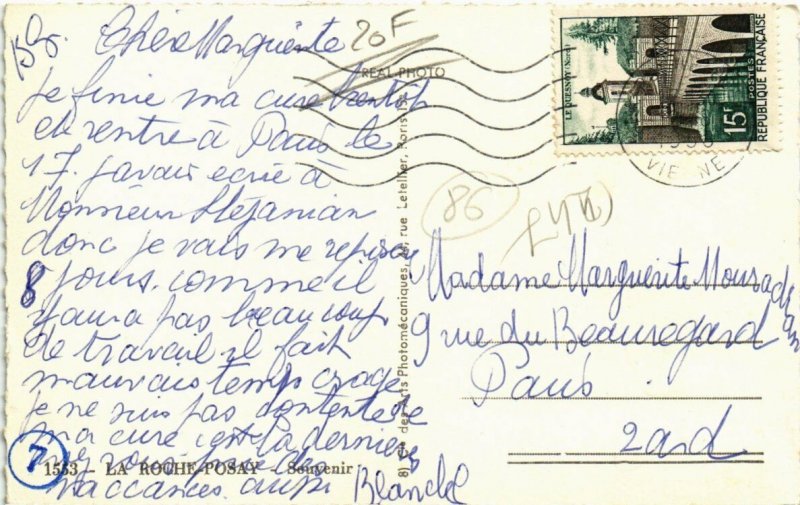 Chère Marguerite
20F
REAL PHOTO
Je finie ma cure bientôt
et rentre à Paris le
17. javais ecrie à
Monsieur Stéjanian
donc je vais me reposer
8 jours. comme il
yaura pas beaucoup
de travail il fait
mauvais temps orage
je ne suis pas contente de
ma cure cest la dernière
vaccances aussi
Blanche
7
1553 - LA ROCHE-POSAY - Souvenir
rue Letellier, Paris
LE QUESNOY (Nord)
15F
POSTES
REPUBLIQUE FRANÇAISE
VIENNE
86
Madame Marguerite Mouradian
9 rue du Beauregard
Paris
2ard